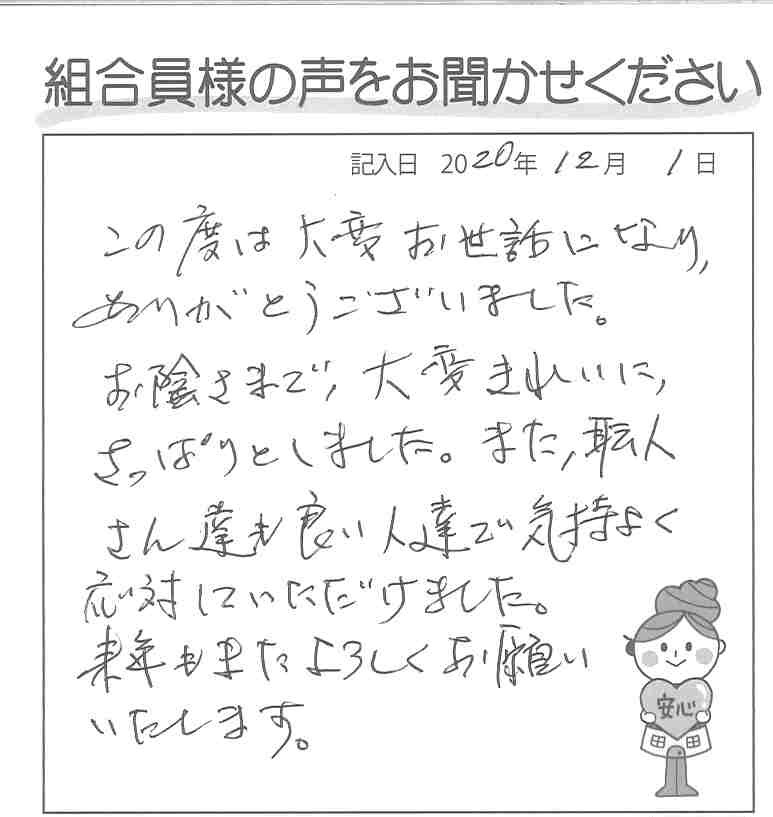 組合員様の声をお聞かせください
記入日 2020年 12月 1日
この度は大変お世話になり、
ありがとうございました。
お陰さまで、大変きれいに、
さっぱりとしました。また、職人
さん達も良い人達で気持よく
応対していただけました。
来年もまたよろしくお願い
いたします。
安心